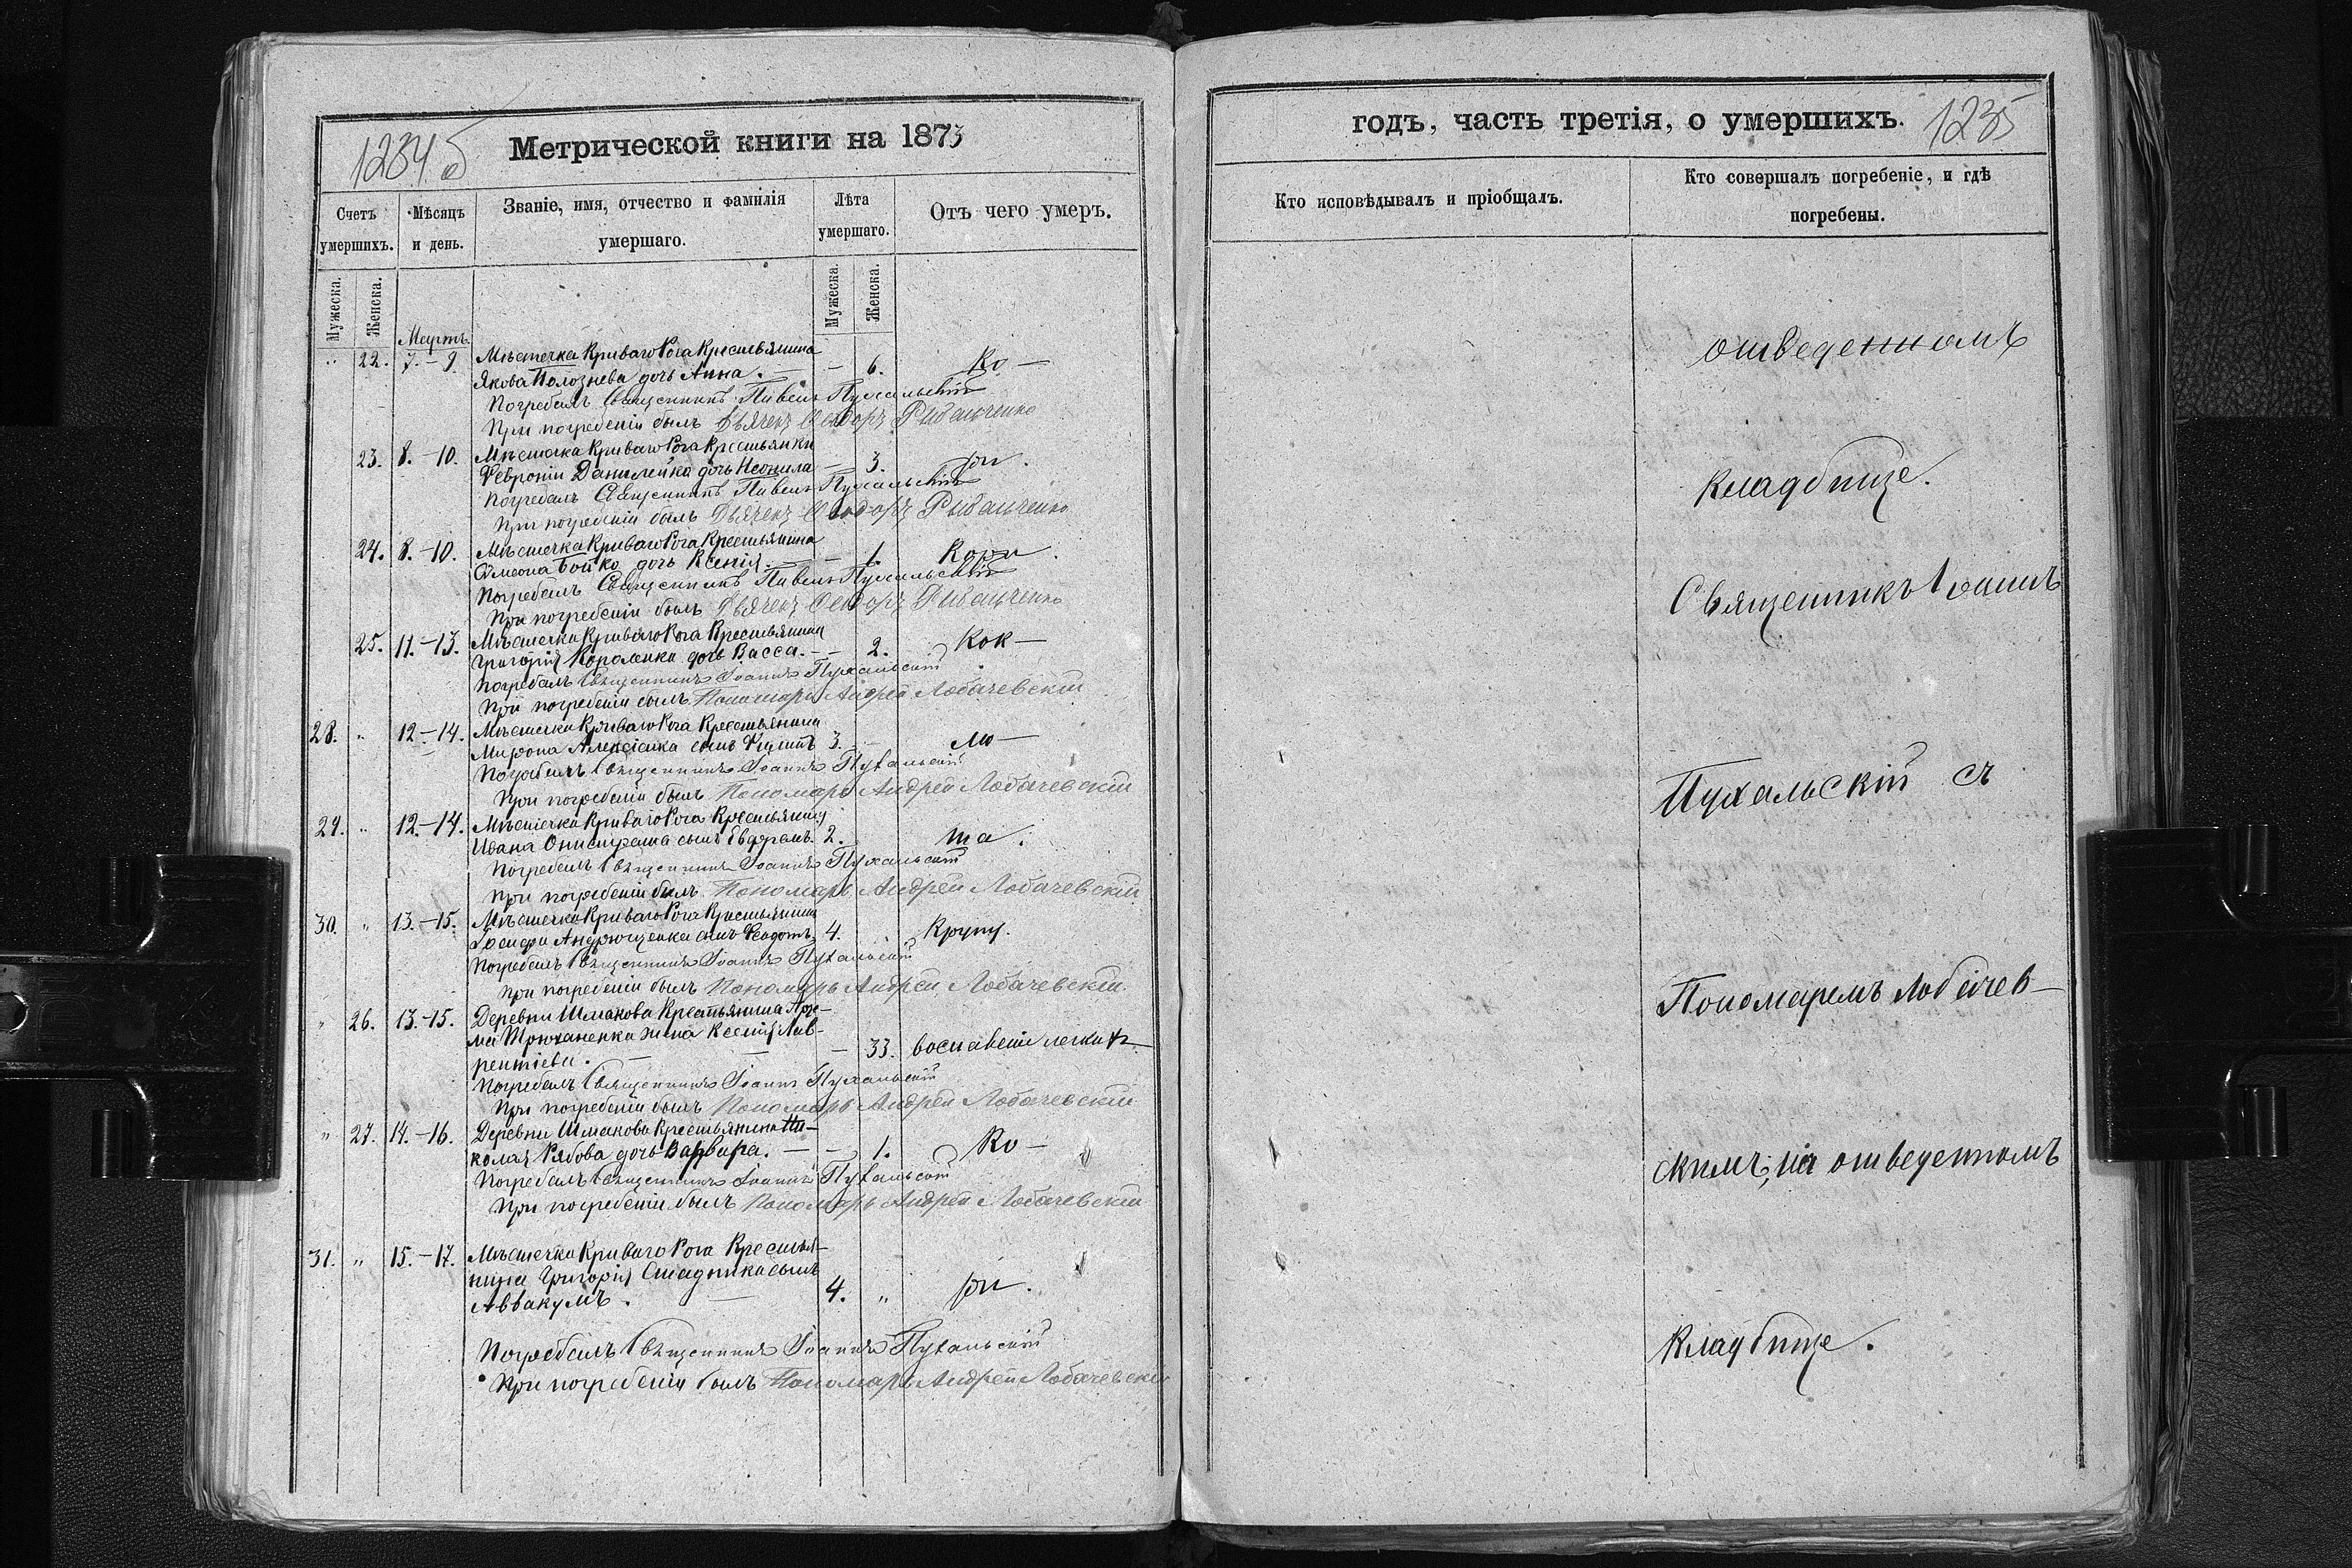 1234 б
Метрической книги на 1873
Счетъ умершихъ.
Мѣсяцъ и день.
Званіе, имя, отчество и фамилія умершаго.
Лѣта умершаго.
Отъ чего умеръ.
Мужеска.
Женска.
Мужеска.
Женска.
Мартъ.
„ 22. 7.-9 Мѣстечка Криваго Рога Крестьянина
Якова Полознева дочь Анна. — — 6. Ко —
Погребалъ Священникъ Павелъ Пухальскій
При погребеніи былъ Дьячекъ Ѳеодоръ Рыбальченко
23. 8.-10. Мѣстечка Криваго Рога Крестьянки
Февроніи Данилейко дочь Неонила — 3. ри.
Погребалъ Священникъ Павелъ Пухальскій
При погребеніи былъ Дьячекъ Ѳеодоръ Рыбальченко
24. 8.-10. Мѣстечка Криваго Рога Крестьянина
Симеона Бойко дочь Ксенія. — 1. Кори.
Погребалъ Священникъ Павелъ Пухальскій
При погребеніи былъ Дьячекъ Ѳеодоръ Рыбальченко
25. 11.-13. Мѣстечка Криваго Рога Крестьянина
Григорія Короленка дочь Васса. — — 2. Кок —
Погребалъ Священникъ Іоаннъ Пухальскій
При погребеніи былъ Пономарь Андрей Лобачевскій
28. „ 12-14. Мѣстечка Криваго Рога Крестьянина
Мирона сынъ 3. — лю —
Погребалъ Священникъ Іоаннъ Пухальскій
При погребеніи былъ Пономарь Андрей Лобачевскій
29. „ 12.-14. Мѣстечка Криваго Рога Крестьянина
Ивана сынъ 2. ша.
Погребалъ Священникъ Іоаннъ Пухальскій
При погребеніи былъ Пономарь Андрей Лобачевскій
30. „ 13.-15. Мѣстечка Криваго Рога Крестьянина
Іосифа Андрющенка сынъ Ѳеодотъ 4. Крупу.
Погребалъ Священникъ Іоаннъ Пухальскій
При погребеніи былъ Пономарь Андрей Лобачевскій.
„ 26. 13.-15. Деревни Шмакова Крестьянина Арте-
ма жена Ксенія Лав-
рентіева. — — — 33. воспаленіе легкихъ
Погребалъ Священникъ Іоаннъ Пухальскій
При погребеніи былъ Пономарь Андрей Лобачевскій
„ 27. 14.-16. Деревни Шмакова Крестьянина Ни-
колая Рябова дочь Варвара. — — 1. Ко —
Погребалъ Священникъ Іоаннъ Пухальскій
При погребеніи былъ Пономарь Андрей Лобачевскій
31. „ 15.-17. Мѣстечка Криваго Рога Крестья-
нина Григорія Стадника сынъ
Аввакумъ. — 4. „ ри.
Погребалъ Священникъ Іоаннъ Пухальскій
При погребеніи былъ Пономарь Андрей Лобачевскій
годъ, часть третія, о умершихъ. 1235
Кто исповѣдывалъ и пріобщалъ.
Кто совершалъ погребеніе, и гдѣ
погребены.
отведенномъ
кладбище.
Священникъ Іоаннъ
Пухальскій съ
Пономаремъ Лобачев-
скимъ, на отведенномъ
кладбище.